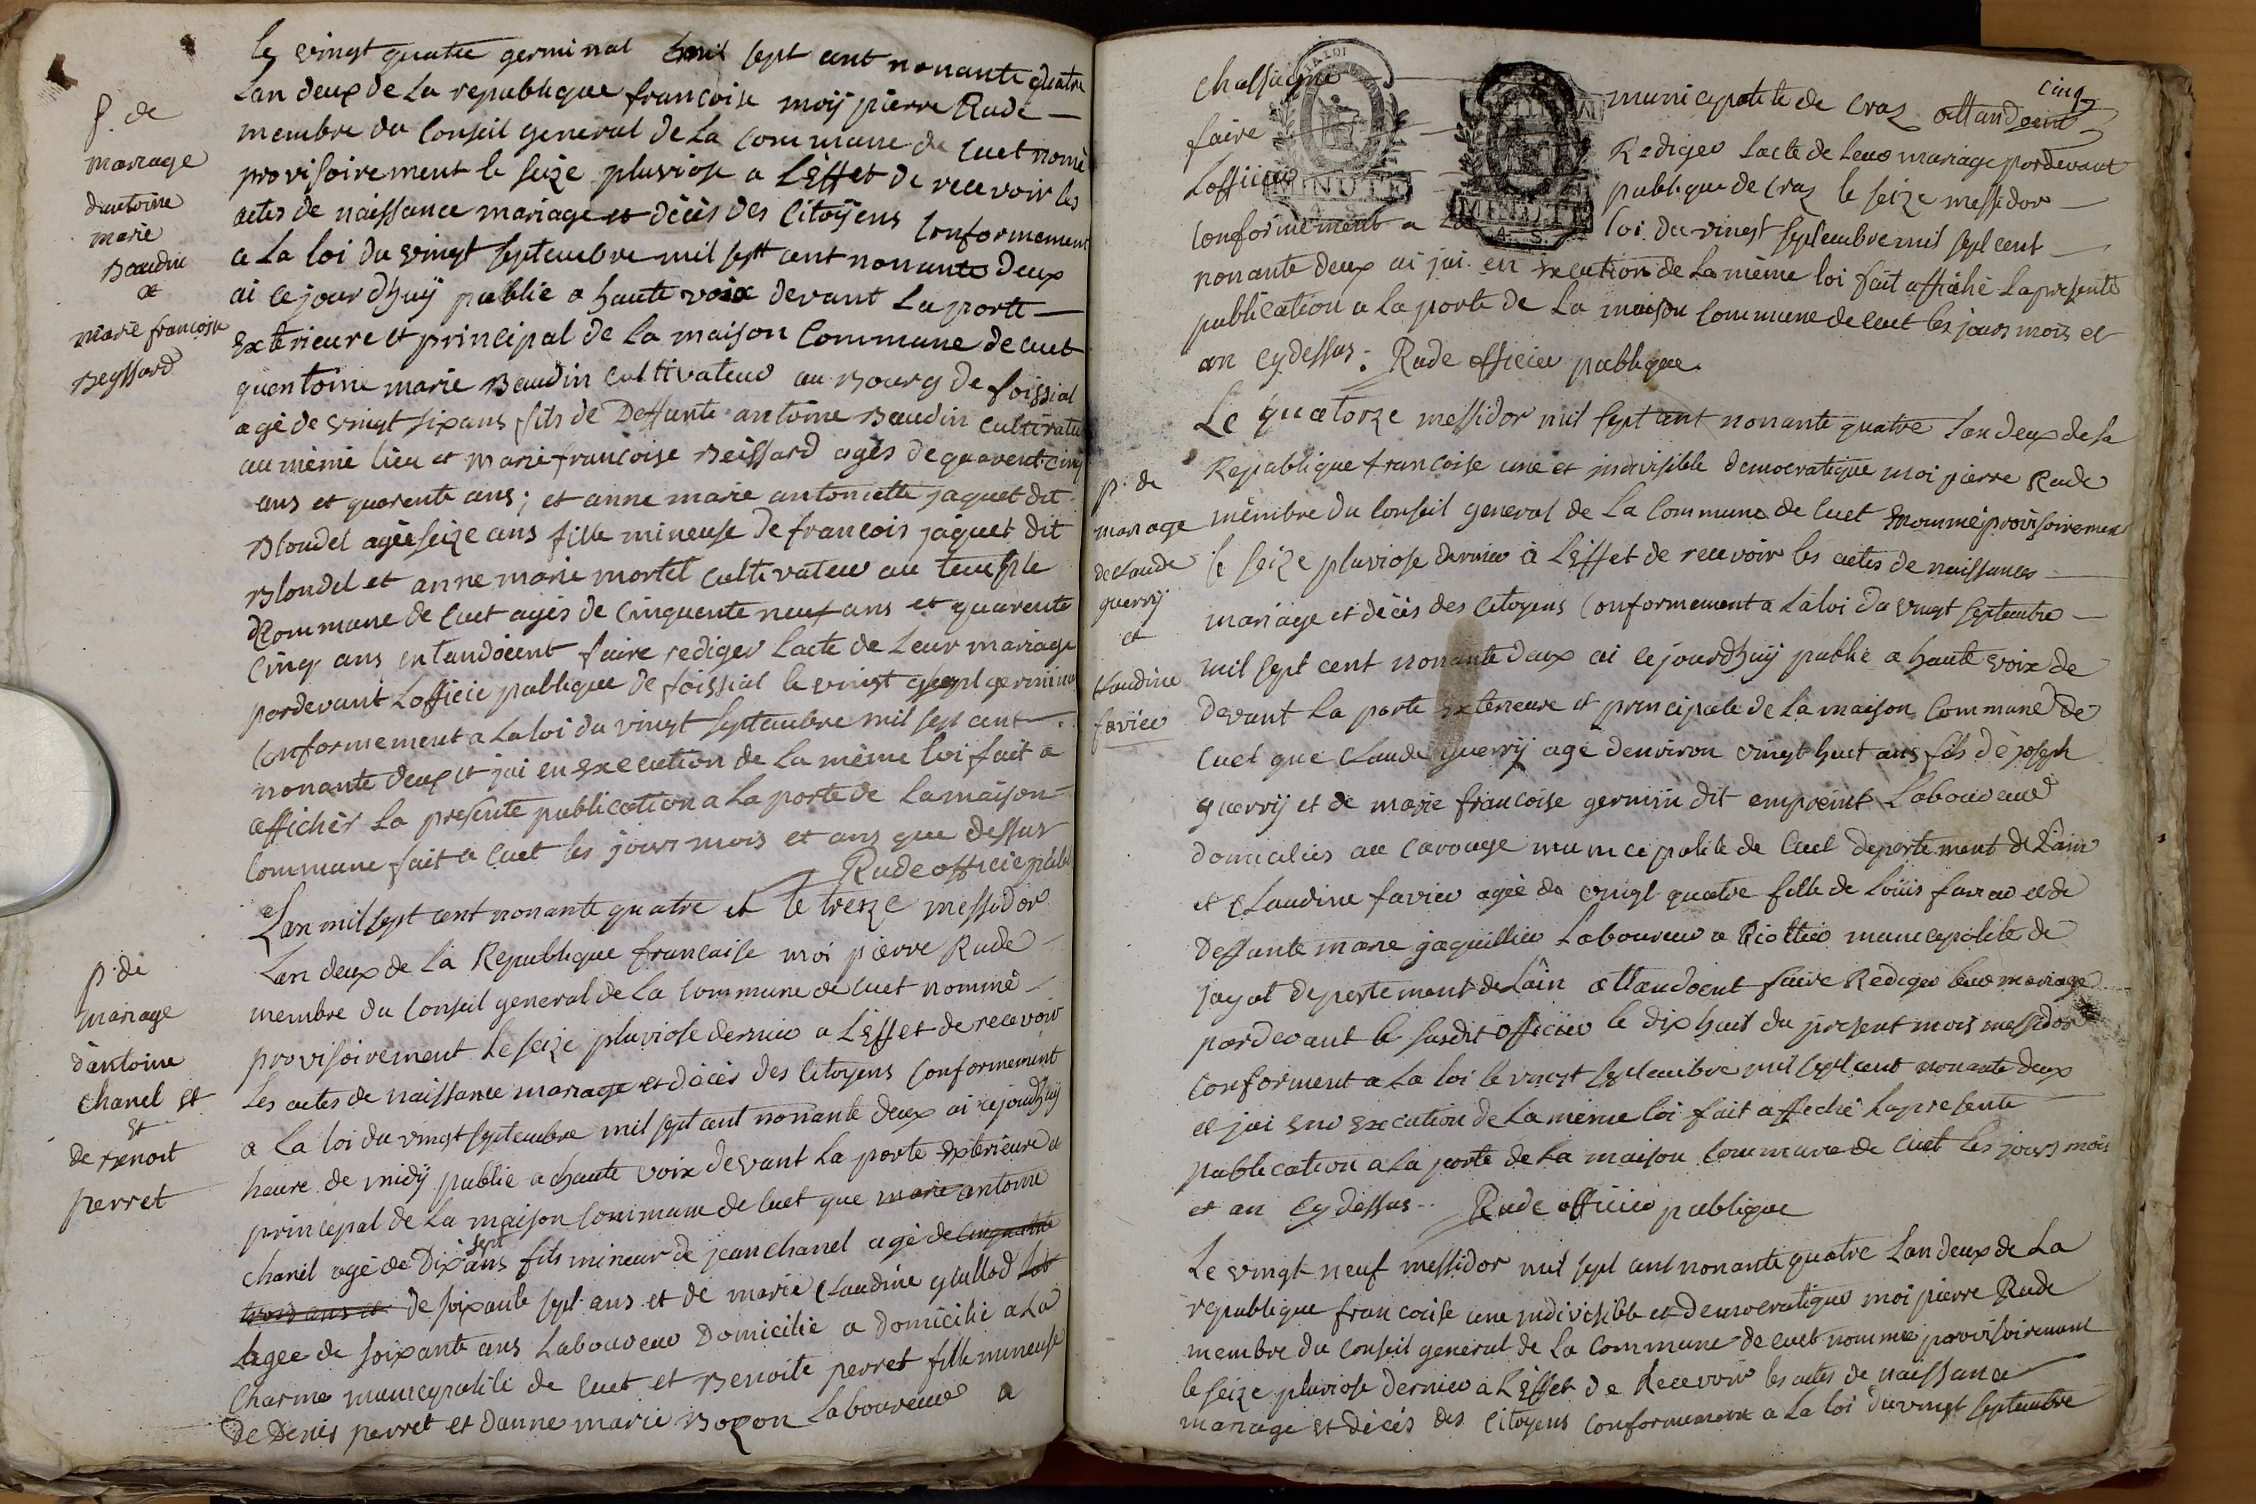 P. de
mariage
dantoine
marie
Beaudin
et
marie francoise
Beyssard
le vingt quatre germinal mil sept cent nonante quatre
Lan deux de La republique francoise moÿ pierre Rude
membre du Conseil general de La commune de Cuet nomé
provisoirement le seize pluviose a L'Effet de recevoir les
actes de naissance mariage et décès des Citoÿens Conformement
a La loi du vingt septembre mil sept cent nonante deux
ai ce jour dhuÿ publie a haute voix devant La porte
Exterieure et principal de La maison Commune de cuet
quentoine marie Beaudin cultivateur au Bourg de foissiat
agé de vingt six ans fils de Deffunte antoine Beaudin cultivateur
au même lieu et Marie francoise Beissard agés de quarent cinq
ans et quarente ans; et anne marie antoniette jaquet dit
Blondel agée seize ans fille mineuse de francois jaquet dit
Blondel et anne marie mortel cultivateur au temple
Commune de Cuet agés de Cinquente neuf ans et quarente
Cinq ans entandoient faire rediger Lacte de Leur mariage
pardevant Lofficie publique de foissiat le vingt sept germinal
Conformement a La loi du vingt septembre mil sept cent
nonante deux et jai en execution de La même loi fait a
afficher La presente publication a La porte de La maison
Commune fait a Cuet les jours mois et ans que dessus
Rude officie publ
P. de
mariage
d'antoine
chanel et
et
de Benoit
perret
Lan mil sept cent nonante quatre et le treize messidor
Lan deux de La Republique francaise moi pierre Rude
membre du Conseil general de La Commune de Cuet nommé
provisoirement Le seize pluviose dernier a L'Effet de recevoir
Les actes de naissance mariage et décès des Citoyens Conformement
a La loi du vingt septembre mil sept cent nonante deux ai cejourdhuÿ
heure de midÿ publie a haute voix devant La porte Exterieure et
principal de La maison Commune de Cuet que marie antoine
Chanel agé de Dix sept ans fils mineur de jean chanel agé de cinquante
trois ans et de soixante sept ans et de marie Claudine
Lagee de soixante ans Laboureur Domicilié a domicilie a La
Charme municipalité de Cuet et Benoite perret fille mineuse
de Denis perret et danne marie Bozon Laboureur a
cinq
chassaigne municipalité de Cras attandoient
faire Rediger Lacte de Leur mariage pardevant
Lofficier publique de Cras le seize messidor
Conformement a La loi du vingt septembre mil sept cent
nonante deux ai jai en execution de La même loi fait affiché La presente
publication a La porte de La maison Commune de Cuet les jours mois et
an Cydessus. Rude officier publique
P. de
mariage
de Claude
guerrÿ
et
Claudine
favier
Le quatorze messidor mil sept cent nonante quatre Lan deux de la
Republique francoise une et indivisible democratique moi pierre Rude
membre du Conseil general de La Commune de Cuet nommé provisoirement
le seize pluviose dernier à L'Effet de recevoir les actes de naissances
mariage et décès des Citoyens Conformement a La loi du vingt septembre
mil sept cent nonante deux ai cejourdhuÿ publie a haute voix de
devant La porte Exterieure et principale de La maison Commune de
Cuet que Claude guerrÿ agé denviron vingt huit ans fils de joseph
guerrÿ et de marie francoise germin dit empreint Laboureur
domicilies au Carouge municipalité de Cuet departement de Lain
et Claudine favier agée de vingt quatre fille de Loüis favier et de
Deffunte marie jaquillier Laboureur a Riottier municipalité de
jayat departement de Lain attandoient faire Rediger leur mariage
pardevant le susdit officier le dix huit du present mois messidor
Conforment a La loi le vingt septembre mil sept cent nonante deux
et jai en execution de La même loi fait affiché La presente
publication a La porte de La maison Commune de Cuet Les jours mois
et an Cy dessus. Rude officier publique
Le vingt neuf messidor mil sept cent nonante quatre Lan deux de La
republique francoise une indivisible et democratique moi pierre Rude
membre du Conseil general de La Commune de Cuet nommé provisoirement
le seize pluviose dernier a L'Effet de Recevoir les actes de naissance
mariage et décès des Citoyens Conformement a La loi du vingt septembre
LA LOI
MINUTE
A. S.
MINUTE
A. S.